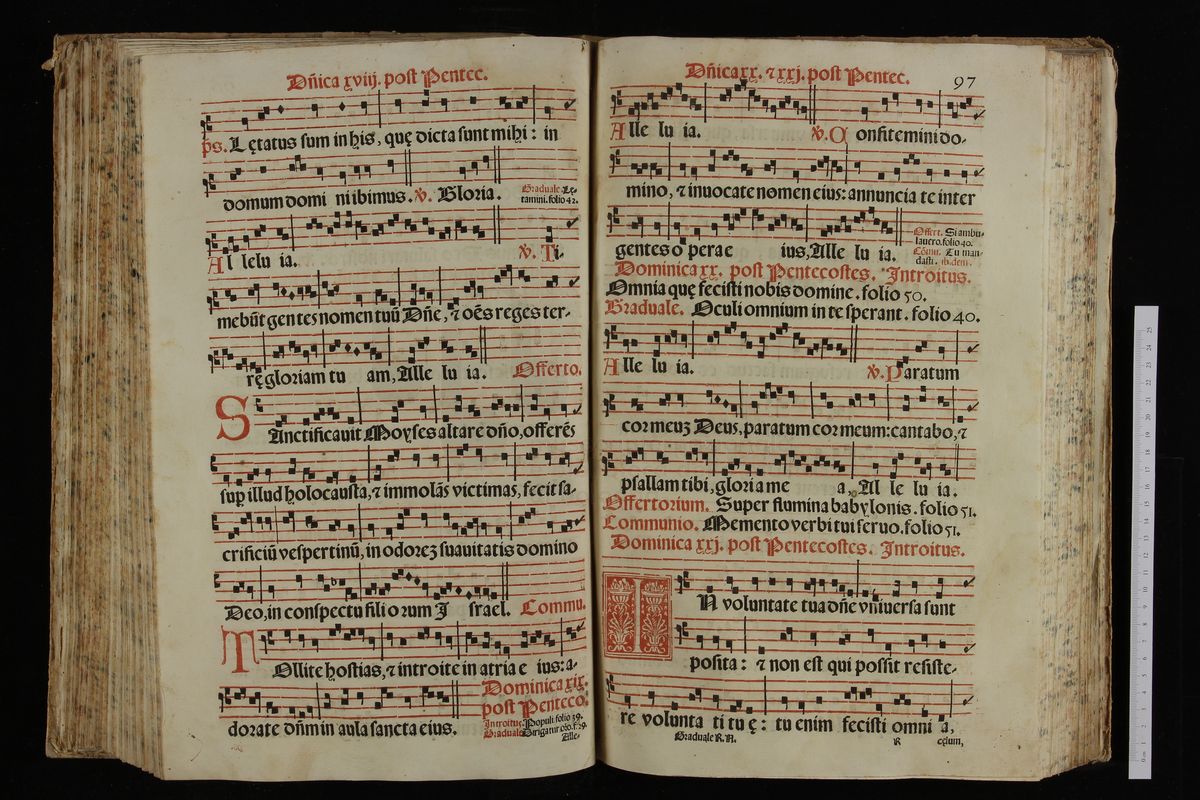 Dñica xviij. post Pentec.
ps. Lętatus sum in his, quę dicta sunt mihi : in
domum domi ni ibimus. ℣. Gloria.
Graduale. Lę-
tamini. folio 42.
Al lelu ia. ℣. Ti-
mebũt gentes nomen tuũ Dñe, ⁊ oẽs reges ter-
rę gloriam tu am, Alle lu ia. Offerto.
SAnctificauit Moyses altare dño, offerẽs
sup illud holocausta, ⁊ immolãs victimas, fecit sa-
crificiũ vespertinũ, in odorez suauitatis domino
Deo, in conspectu fili orum I srael. Commu.
TOllite hostias, ⁊ introite in atria e ius: a-
dorate dñm in aula sancta eius.
Dominica xix.
post Penteco.
Introitus. Populi folio 39.
Graduale Dirigatur oro. f. 29.
Alle-
Dñica xx. ⁊ xxj. post Pentec. 97
Alle lu ia. ℣. C onfitemini do-
mino, ⁊ inuocate nomen eius: annuncia te inter
gentes o pera e ius, Alle lu ia.
Offert. Si ambu-
lauero. folio 40.
Cõmu. Tu man-
dasti. ib. dem.
Dominica xx. post Pentecostes. Introitus.
Omnia quę fecisti nobis domine. folio 50.
Graduale. Oculi omnium in te sperant. folio 40.
Alle lu ia. ℣. Paratum
cor meuz Deus, paratum cor meum: cantabo, ⁊
psallam tibi, gloria me a, Al le lu ia.
Offertorium. Super flumina babylonis. folio 51.
Communio. Memento verbi tui seruo. folio 51.
Dominica xxj. post Pentecostes. Introitus.
IN voluntate tua dñe vniuersa sunt
posita : ⁊ non est qui possit resiste-
re volunta ti tu ę : tu enim fecisti omni a,
Graduale R. A. R cęlum,